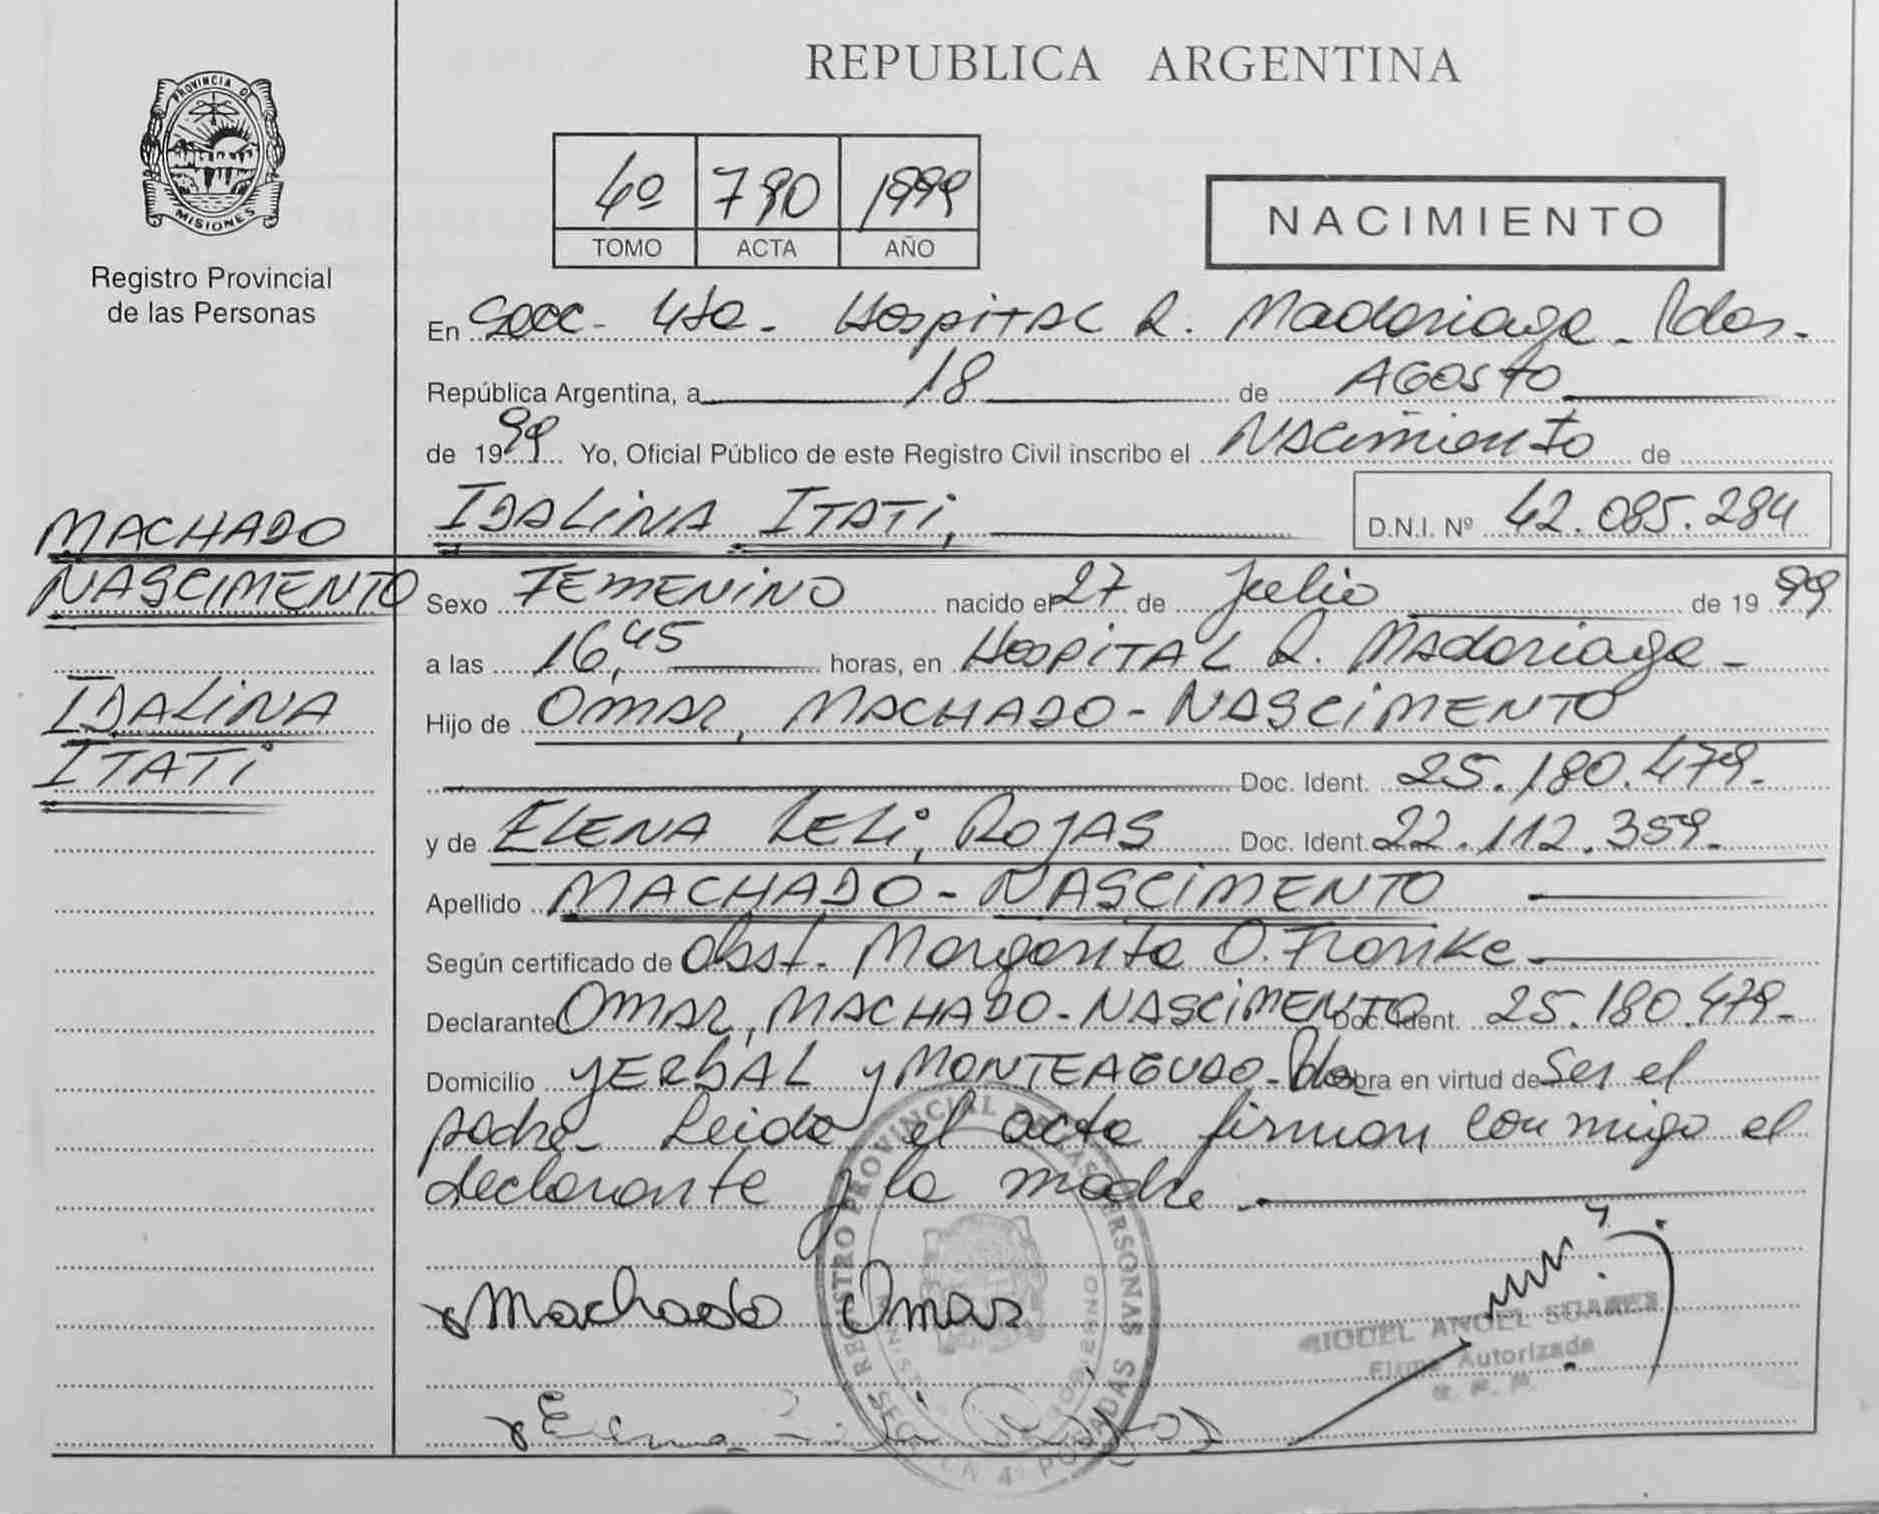 REPUBLICA ARGENTINA
PROVINCIA DE
MISIONES
Registro Provincial
de las Personas
4º 790 1999
TOMO ACTA AÑO
NACIMIENTO
En Secc. 4ta. Hospital R. Madariaga - Pdas.
República Argentina, a 18 de AGOSTO
de 1999 Yo, Oficial Público de este Registro Civil inscribo el Nacimiento de
IDALINA ITATI, D.N.I. Nº 42.085.284
MACHADO
NASCIMENTO
IDALINA
ITATI
Sexo FEMENINO nacido el 27 de Julio de 1999
a las 16,45 horas, en Hospital R. Madariaga -
Hijo de OMAR, MACHADO - NASCIMENTO
Doc. Ident. 25.180.479.-
y de ELENA LELI, ROJAS Doc. Ident. 22.112.359.-
Apellido MACHADO - NASCIMENTO
Según certificado de Obst. Margarita O. Franke.-
Declarante OMAR, MACHADO - NASCIMENTO Doc. Ident. 25.180.479.-
Domicilio YERBAL y MONTEAGUDO - Pdas. Obra en virtud de Ser el
padre - Leida el acta firman conmigo el
declarante y la madre.-
Machado Omar
MIGUEL ANGEL SUAREZ
Firma Autorizada
R. P. P.
Elena
REGISTRO PROVINCIAL DE LAS PERSONAS
SECCION 4ª POSADAS